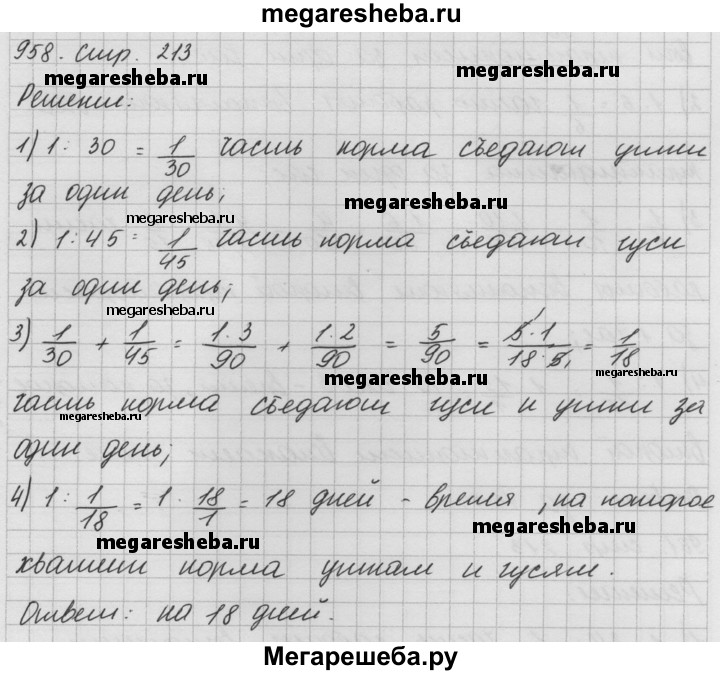 megaresheba.ru
958. стр. 213
megaresheba.ru megaresheba.ru
Решение:
1) 1 : 30 = 1/30 часть корма съедают утки
за один день;
megaresheba.ru megaresheba.ru
2) 1 : 45 = 1/45 часть корма съедают гуси
за один день;
megaresheba.ru
3) 1/30 + 1/45 = 1·3/90 + 1·2/90 = 5/90 = 5·1/18·5 = 1/18
megaresheba.ru megaresheba.ru
часть корма съедают гуси и утки за
megaresheba.ru
один день;
4) 1 : 1/18 = 1 · 18/1 = 18 дней - время, на которое
megaresheba.ru megaresheba.ru
хватит корма уткам и гусям.
Ответ: на 18 дней.
Мегарешеба.ру